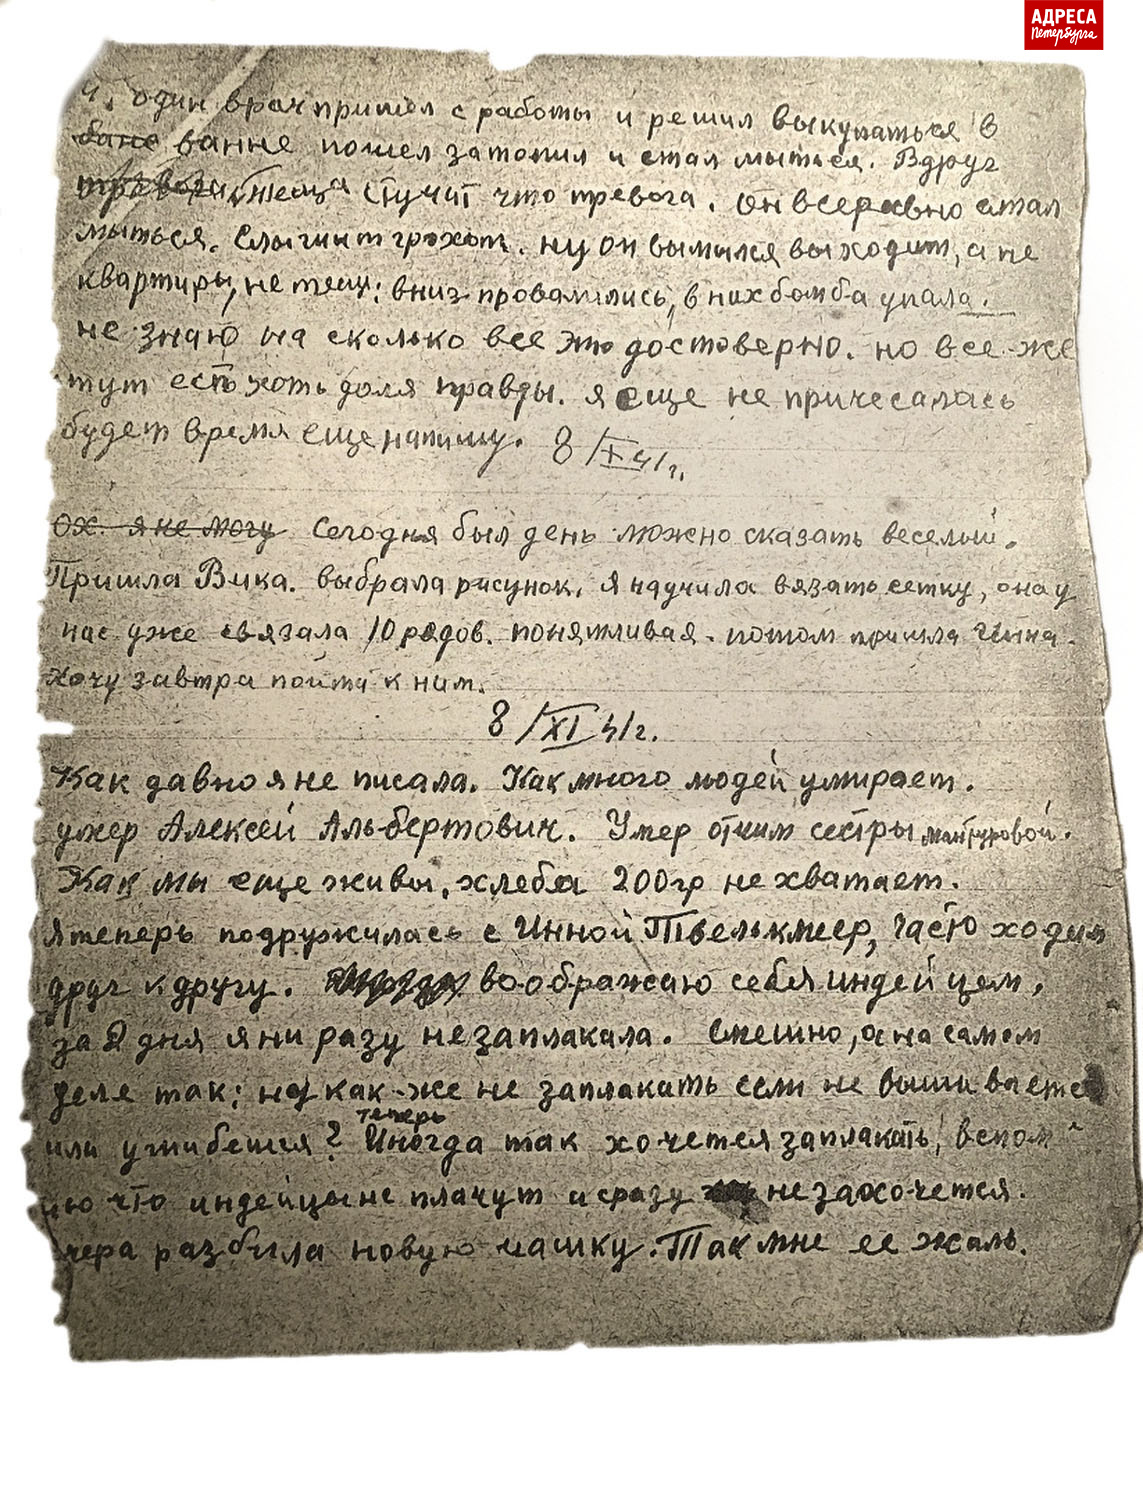 АДРЕСА
Петербурга
4. один врач пришел с работы и решил выкупаться в
бане ванне пошел затопил и стал мыться. Вдруг
стучат что тревога. Он всеравно стал
мыться. Слышит грохот. ну он вымылся выходит, а не
квартиры, не тещи: вниз провалились, в них бомба упала.
не знаю на сколько все это достоверно. но все-же
тут есть хоть доля правды. я еще не причесалась
будет время еще напишу. 8/X 41г.
ох. я не могу Сегодня был день можно сказать веселый.
Пришла Вика. выбрала рисунок. я научила вязать сетку, она у
нас уже связала 10 рядов. понятливая. потом пришла Инна.
Хочу завтра пойти к ним.
8/XI 41г.
Как давно я не писала. Как много людей умирает.
умер Алексей Альбертович. Умер отчим сестры.
Как мы еще живы, хлеба 200гр не хватает.
Я теперь подружилась с Инной Твелькмеер, часто ходим
друг к другу. воображаю себя индейцем,
за 2 дня я ни разу не заплакала. Смешно, а на самом
деле так; ну как-же не заплакать если не вышивается
или ушибешся? теперь Иногда так хочется заплакать, вспом-
ню что индейцы не плачут и сразу не захочется.
чера разбила новую чашку. Так мне ее жаль.